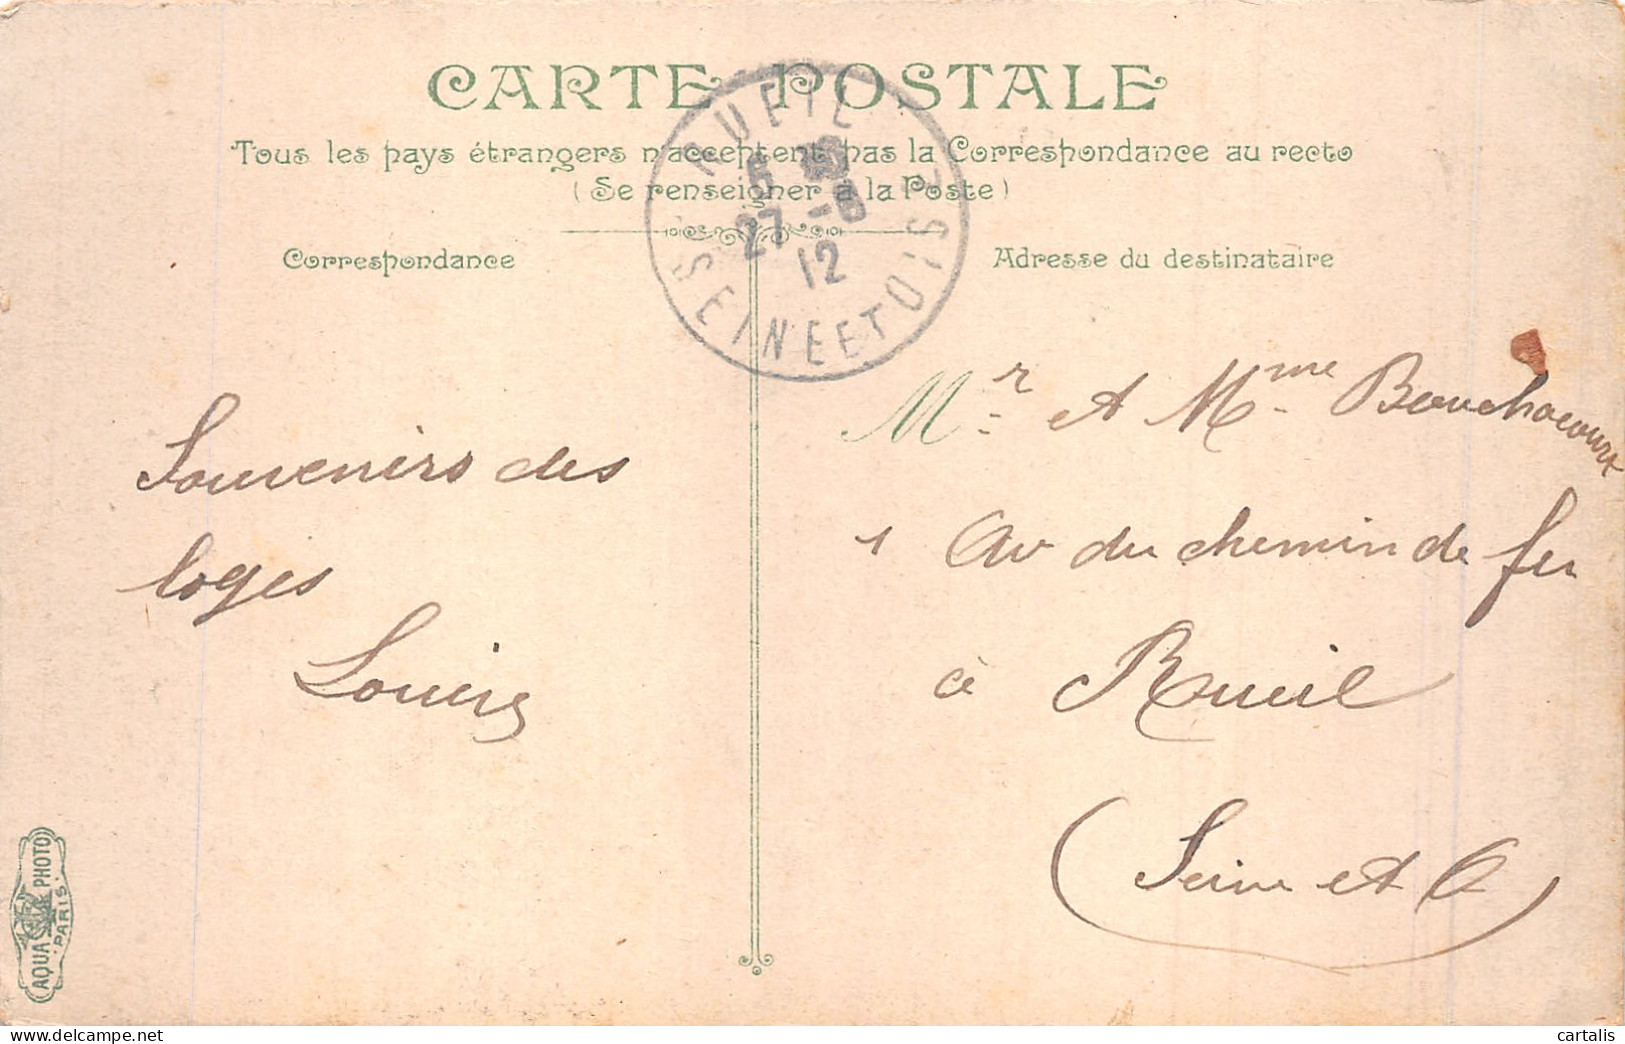 CARTE POSTALE
Tous les pays étrangers n'acceptent pas la Correspondance au recto
(Se renseigner à la Poste)
RUEIL
27 - 8
12
SEINE ET OISE
Correspondance
Adresse du destinataire
Souvenirs des
loges
Louis
Mr et Mme Bouchacourt
1 Av du chemin de fer
à Rueil
(Seine et O)
AQUA PHOTO
PARIS
cartalis